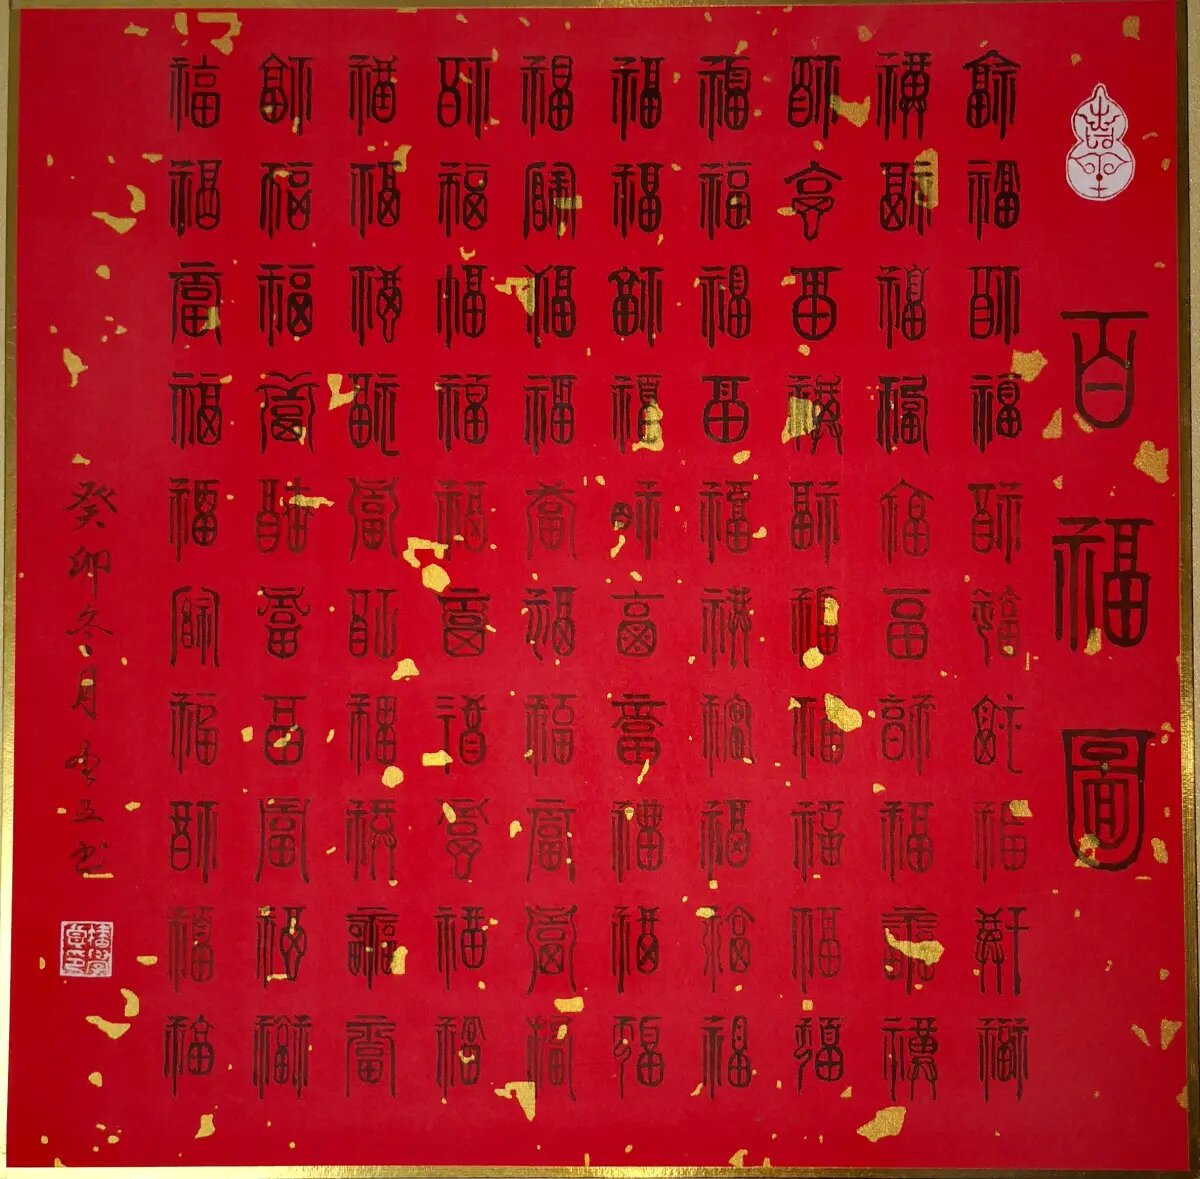 百福圖
福福福福福福福福福福
福福福福福福福福福福
福福福福福福福福福福
福福福福福福福福福福
福福福福福福福福福福
福福福福福福福福福福
福福福福福福福福福福
福福福福福福福福福福
福福福福福福福福福福
福福福福福福福福福福
癸卯冬月书